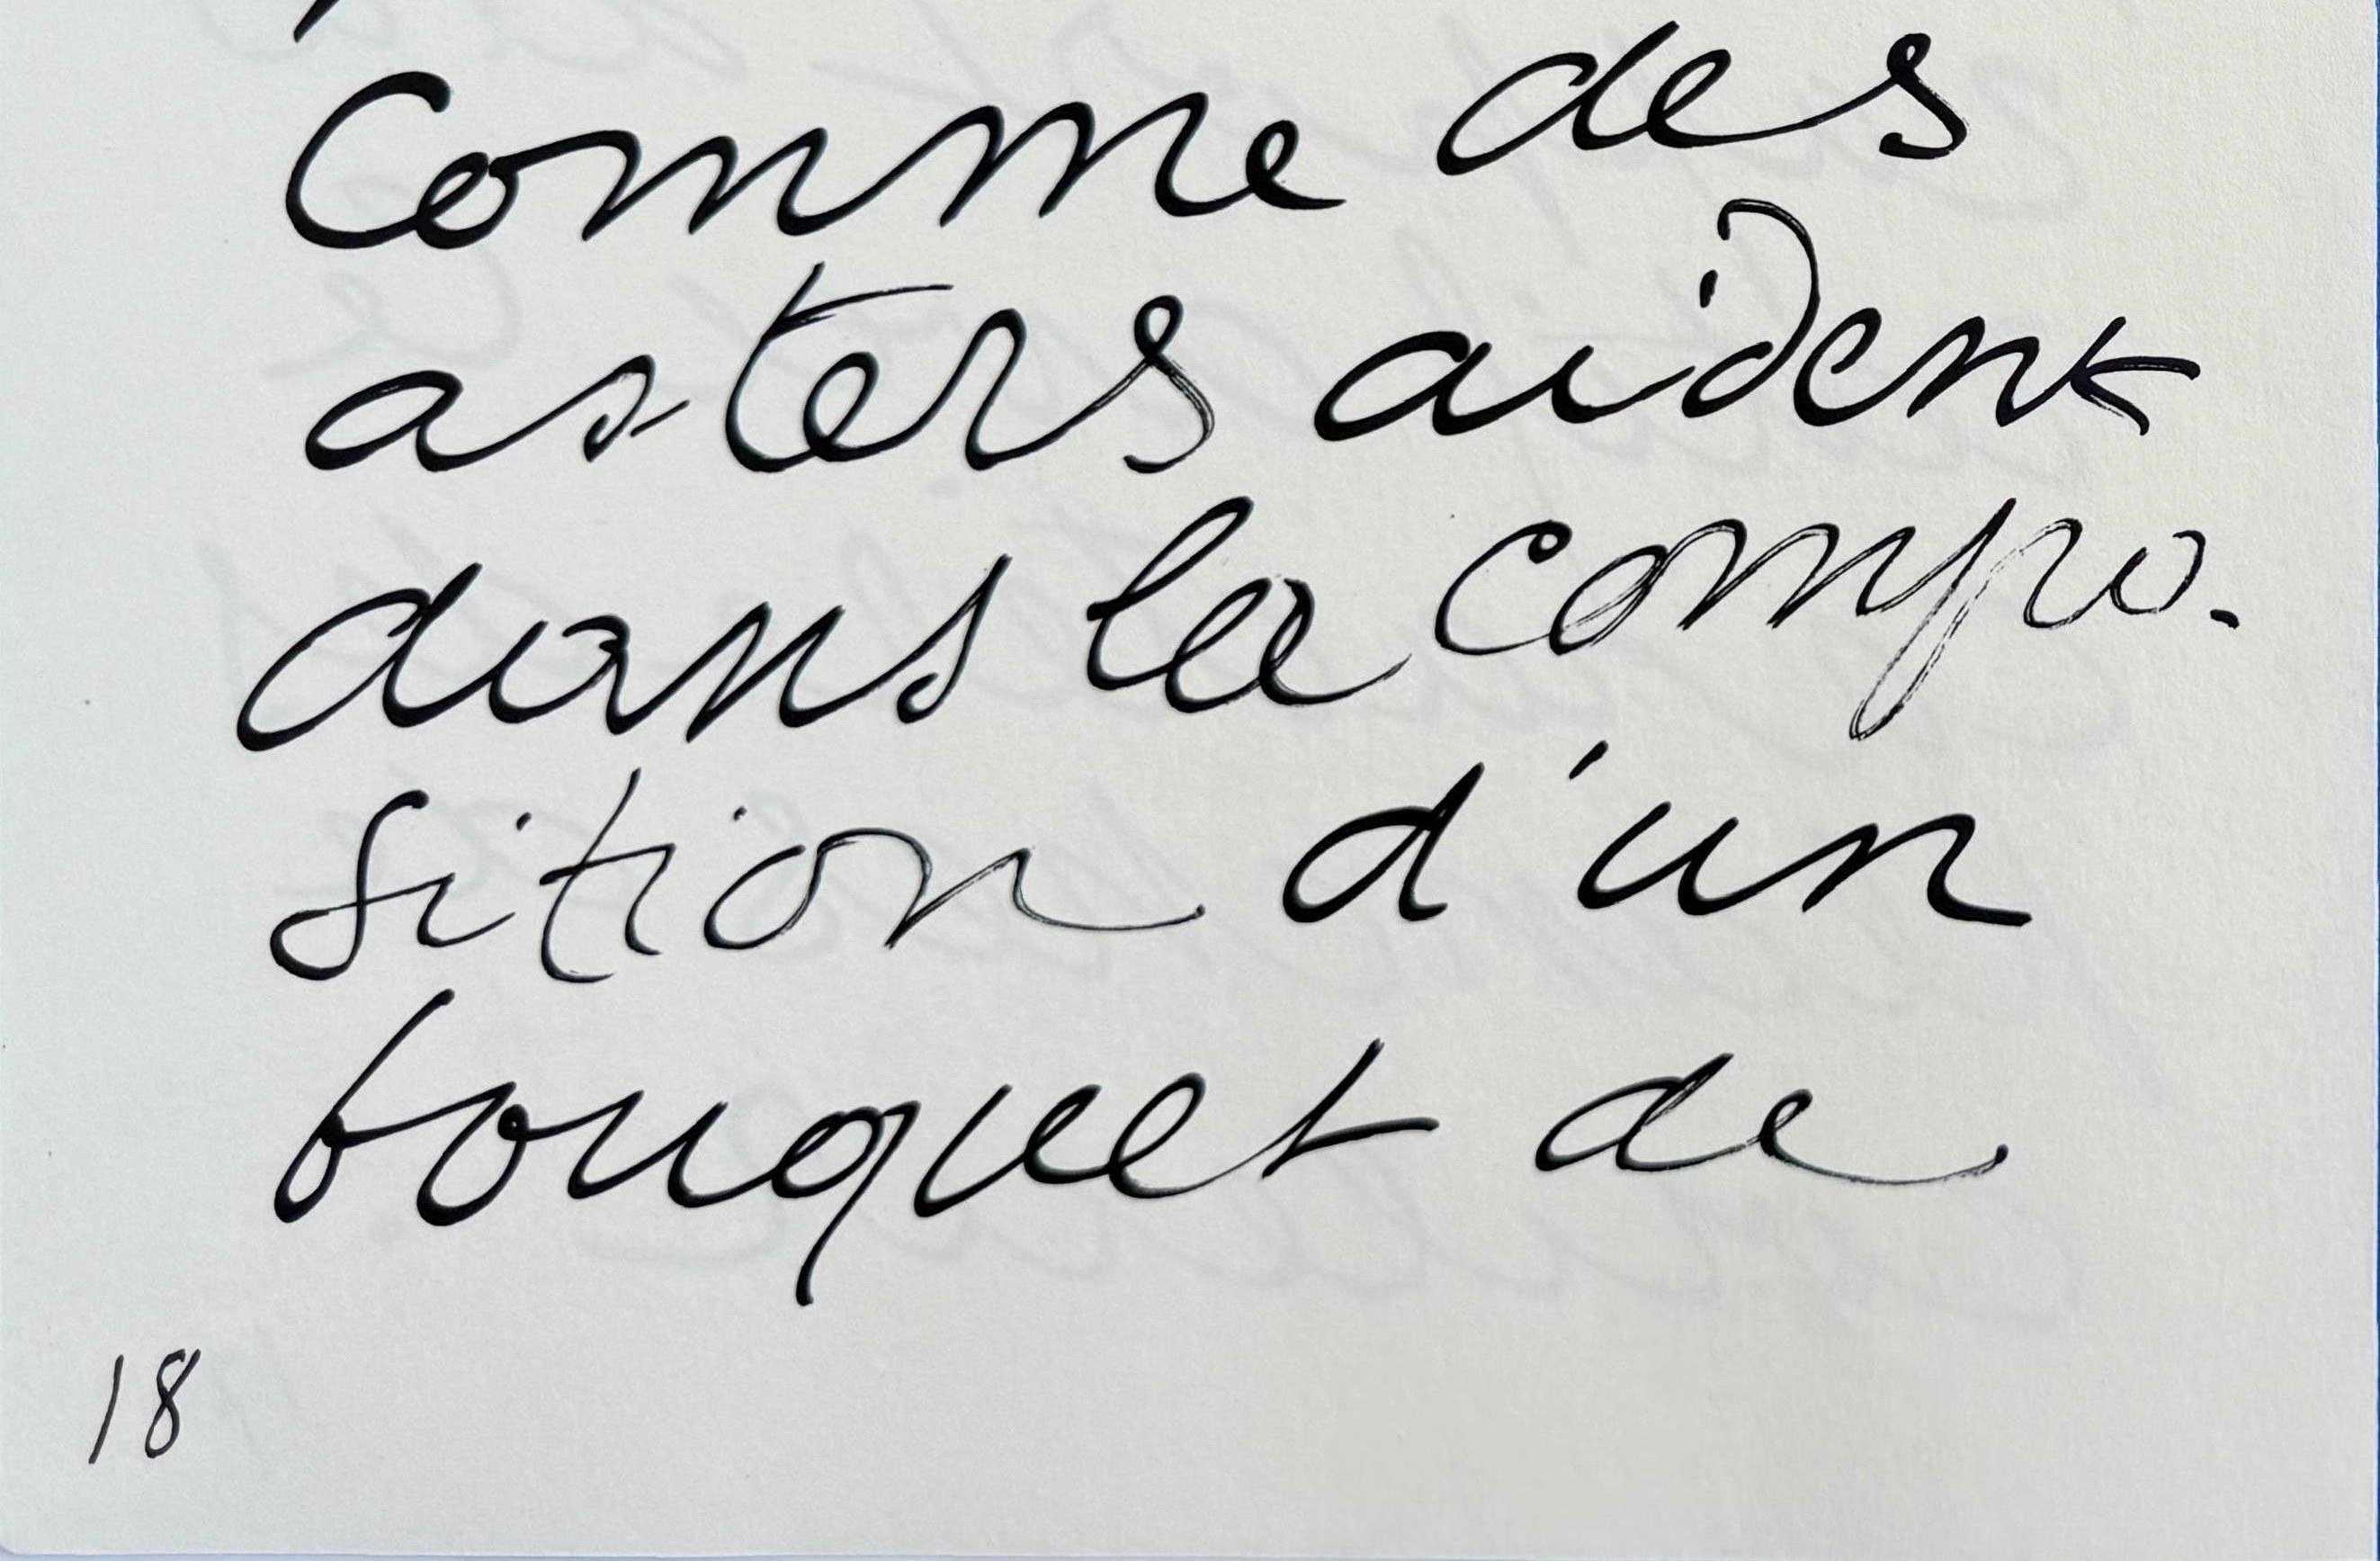 Comme des
asters aident
dans la compo-
sition d'un
bouquet de
18